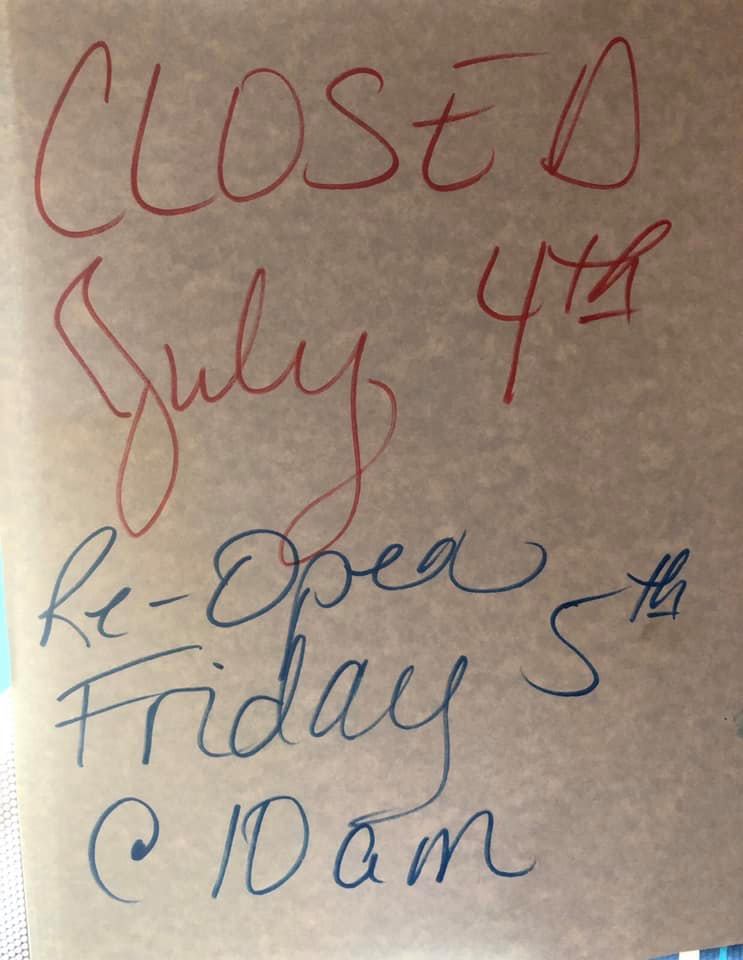 CLOSED
July 4th
Re-Open
Friday 5th
@ 10am